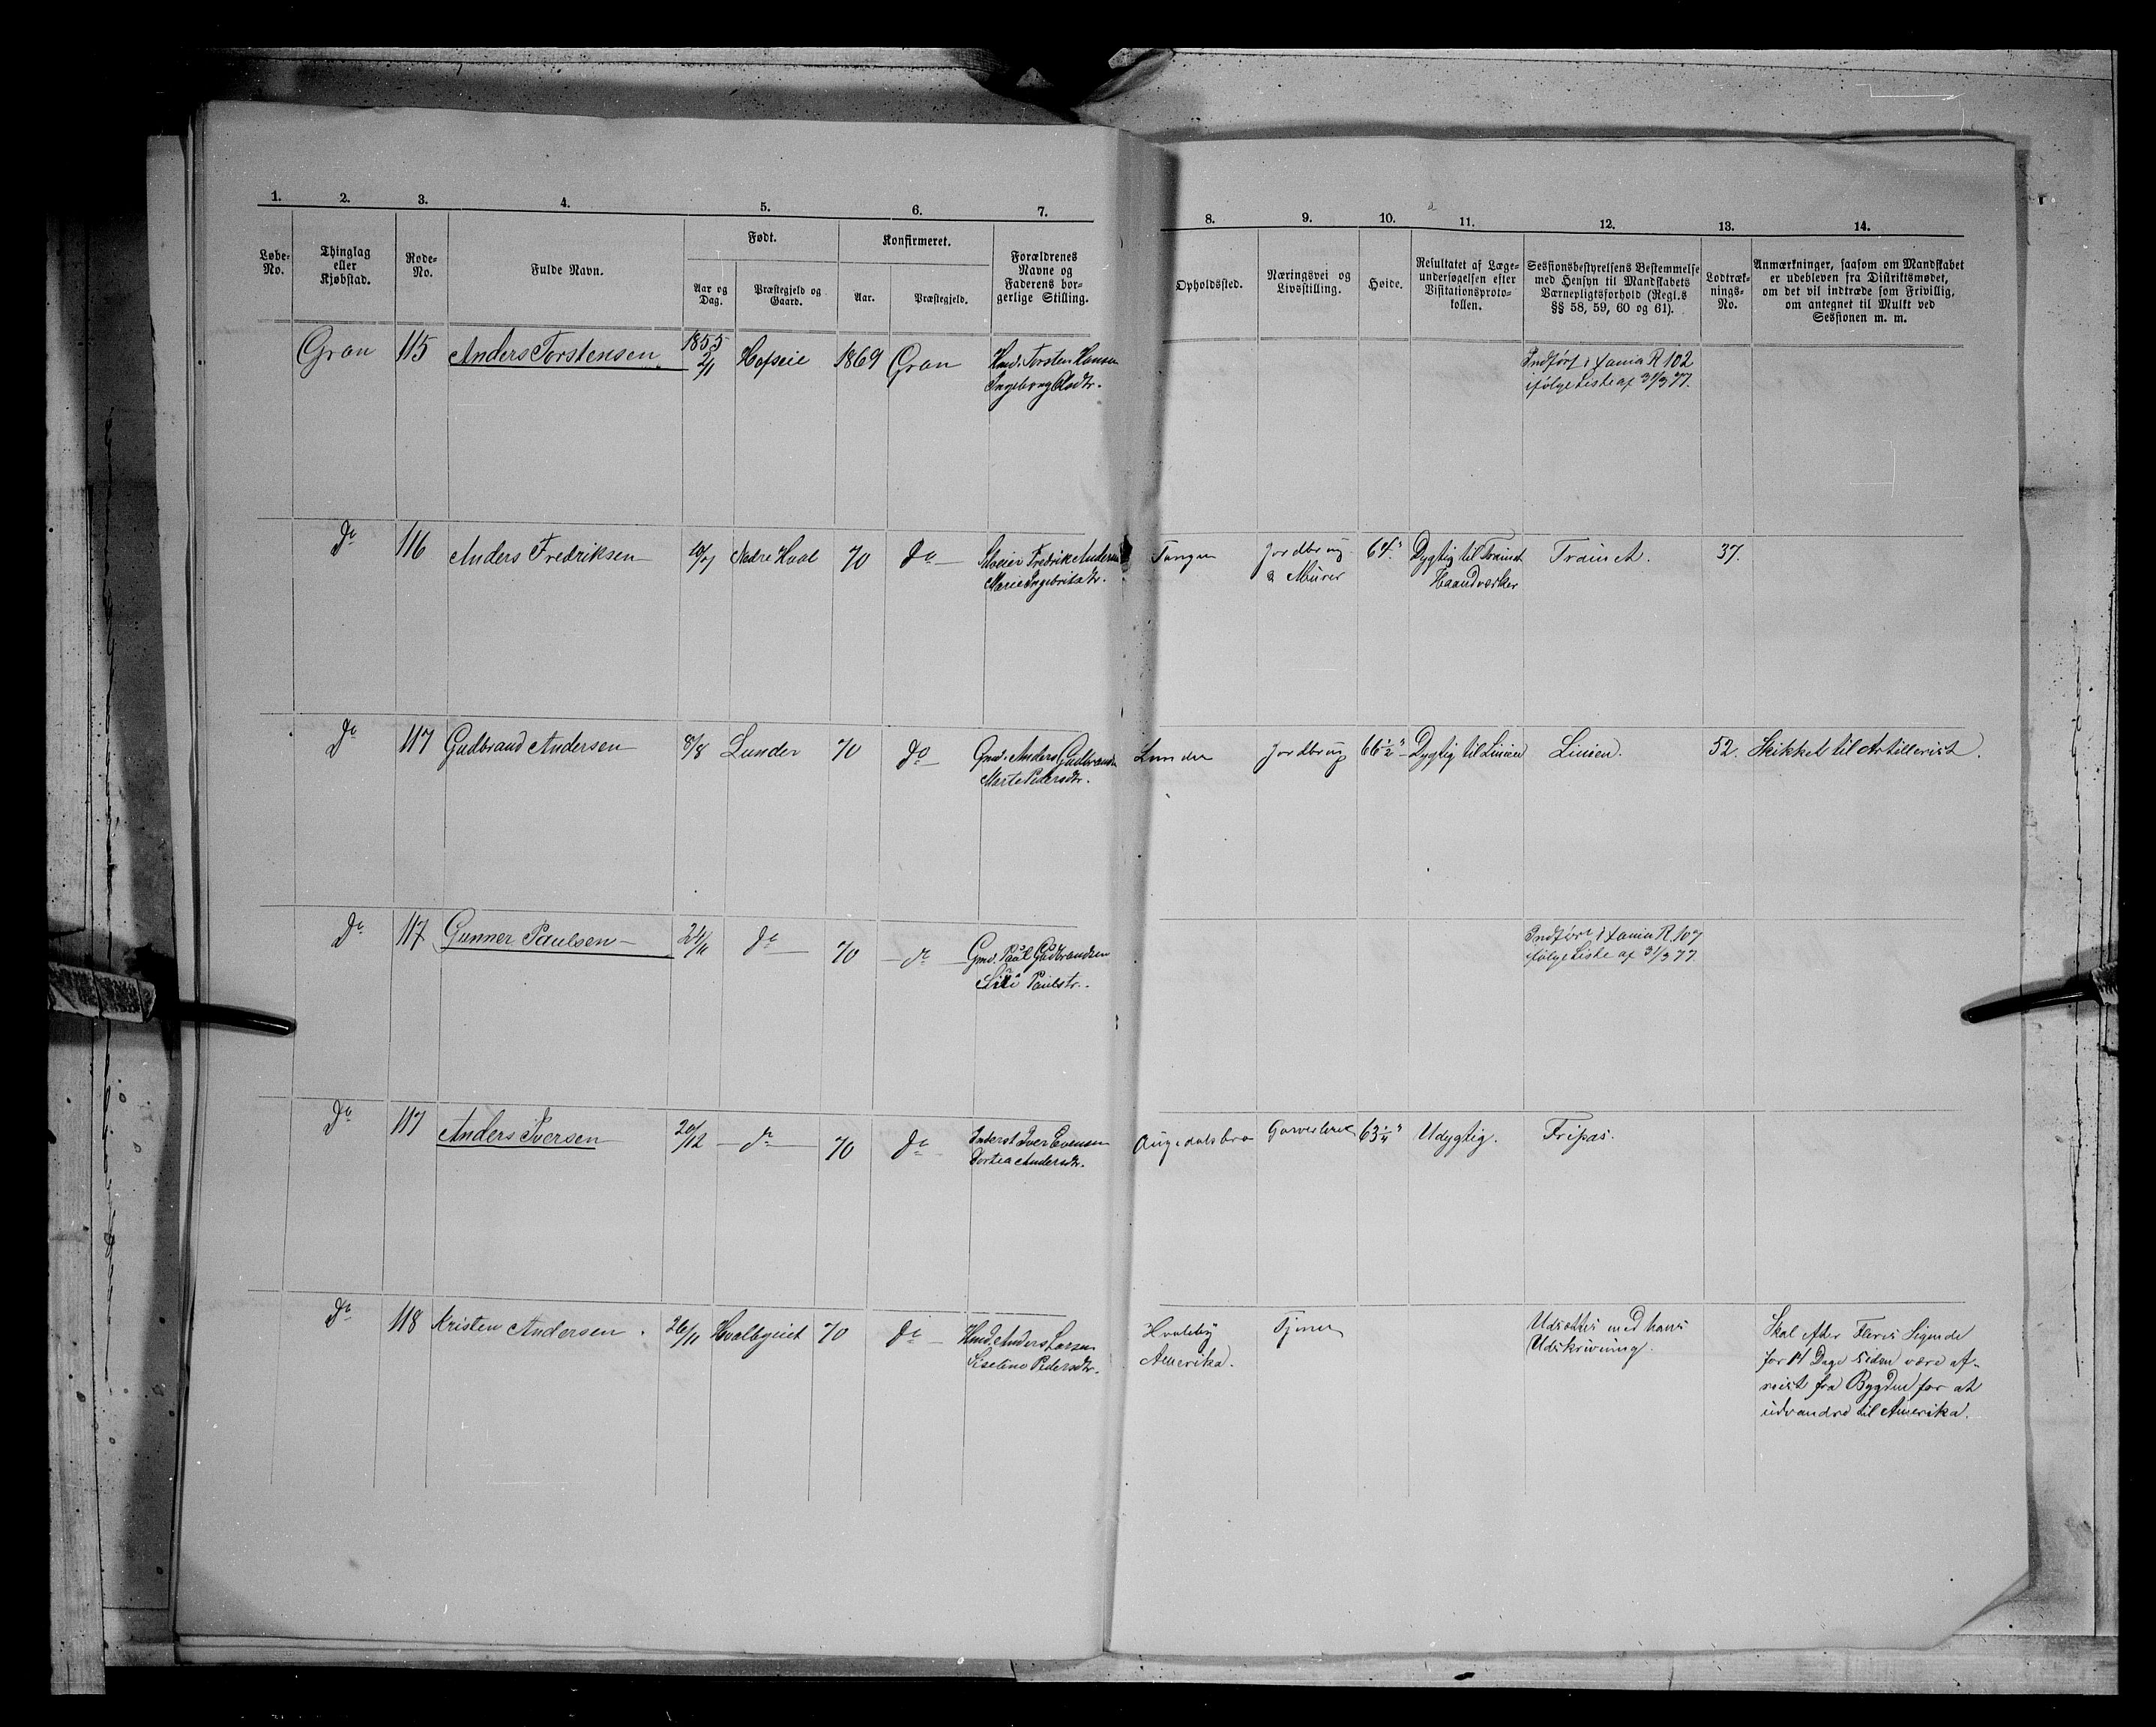 1. 2. 3. 4. 5. 6. 7. 8. 9. 10. 11. 12. 13. 14.
Løbe-
No.
Thinglag
eller
Kjøbstad.
Rode-
No.
Fulde Navn.
Født.
Aar og
Dag.
Præstegjeld og
Gaard.
Konfirmeret.
Aar.
Præstegjeld.
Forældrenes
Navne og
Faderens bor-
gerlige Stilling.
Opholdssted.
Næringsvei og
Livsstilling.
Høide.
Resultatet af Læge-
undersøgelsen efter
Visitationsproto-
kollen.
Sessionsbestyrelsens Bestemmelse
med Hensyn til Mandskabets
Værnepligtsforhold (Regl.s
§§ 58, 59, 60 og 61).
Lodtræk-
nings-
No.
Anmærkninger, saasom om Mandskabet
er udebleven fra Distriktsmødet,
om det vil indtræde som Frivillig,
om antegnet til Mulkt ved
Sessionen m. m.
Gran 115 Anders Torstensen 1855 2/1 Hofseie 1869 Gran
Hmd. Torsten Hansen
Ingeborg Olsdtr.
Indført i R 102
ifølge Liste af 31/3 77.
Do 116 Anders Fredriksen Nedre Hval 70 Do
Fredrik Andersen
Marie Ingebritsdtr.
Tangen
Jordbrug
& Murer
64"
Dygtig til Trainet
Haandværker
Trainet. 37.
Do 117 Gudbrand Andersen 8/8 Lunder 70 Do
Gmd. Anders Gudbrands
Marte Pedersdtr.
Lunder Jordbrug 66 1/2" Dygtig til Linien Linien. 52. Skikket til Artillerist.
Do 117 Gunner Paulsen 24/11 do 70 do
Gmd. Paul Gudbrandsen
Siri Paulsdtr.
Indført i R. 107
ifølge Liste af 31/3 77.
Do 117 Anders Iversen 20/12 do 70 do
Inderst Iver Evensen
Andersdtr.
Augedalsbro 63 1/4" Udygtig. Fripas.
Do 118 Kristen Andersen. 26/11 Hvalbyeiet 70 do
Hmd. Anders Larsen
Pedersdtr.
Hvaleby
Amerika.
Tjener
Udsættes med hans
Udskrivning.
Skal efter Fleres Sigende
for 14 Dage siden være af-
reist fra Bygden for at
udvandre til Amerika.